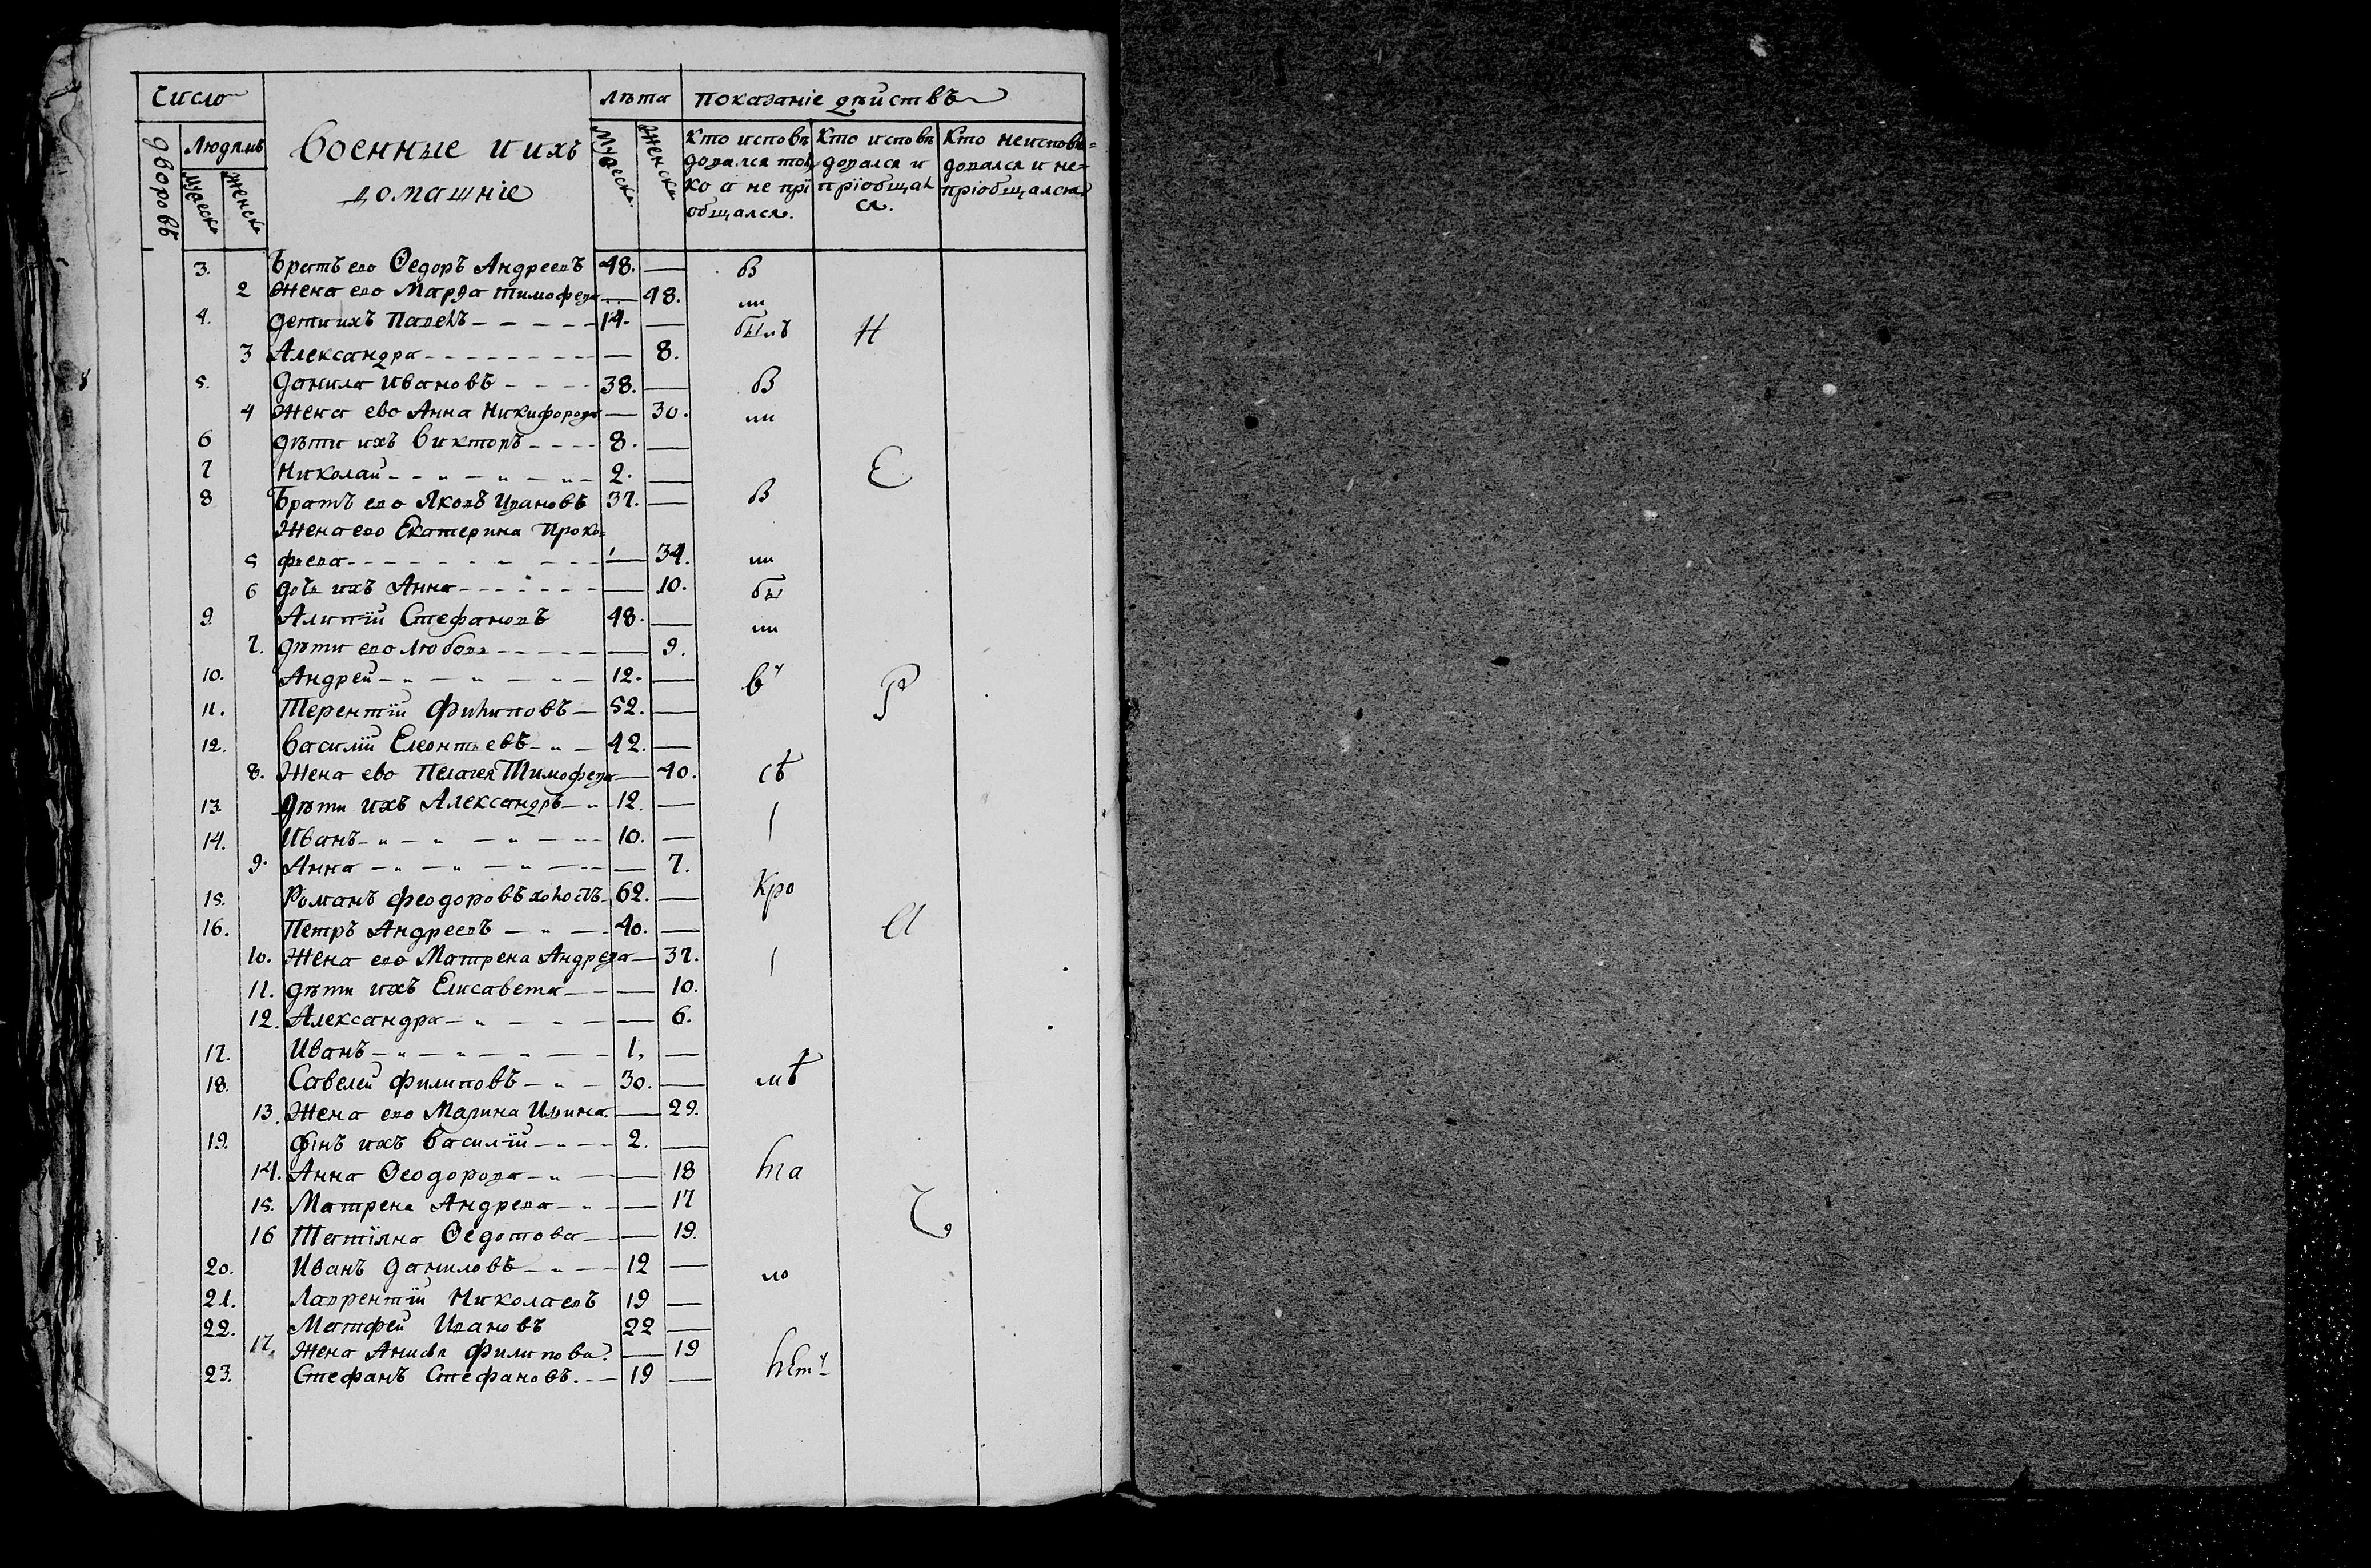 Число
Лѣта
Показаніе дѣиствъ
дворовъ
Людямъ
Мужеск.
Женск.
Военные и ихъ
домашніе
Мужеск.
Женск.
Кто исповѣ
довался толь
ко а не прі
общался.
Кто исповѣ
довался и
пріобщал
ся.
Кто неисповѣ=
довался и не=
пріобщался
3. Братъ ево Ѳедоръ Андреевъ 48. — В
2 Жена ево Марѳа Тимофева — 48. ıııı
4. Дети ихъ Павелъ 14. — былъ Н
3 Александра — 8.
5. Данила Ивановъ 38. — В
4 Жена ево Анна Никифорова — 30.
6 Дѣти ихъ Викторъ 8. —
7 Николаи 2. — Е
8 Братъ ево Яковъ Ивановъ 37. — В
Жена ево Екатерина Проко=
5 фьева — 34.
6 дочь ихъ Анна — 10. бы
9. Алипїи Стефановъ 48. —
7. Дѣти ево Любовь — 9.
10. Андреи 12. — въ Р
11. Терентїи Филиповъ 52. —
12. Василїи Елеонтьевъ 42. —
8. Жена ево Пелагея Тимофева — 40. сѣ
13. Дѣти ихъ Александръ 12. —
14. Иванъ 10. —
9. Анна — 7.
15. Романъ Феодоровъ холостъ 62. — Кро
16. Петръ Андреевъ 40. — И
10. Жена ево Матрена Андрева — 37.
11. Дѣти ихъ Елисавета — 10.
12. Александра — 6.
17. Иванъ 1, —
18. Савелеи Филиповъ 30. — мѣ
13. Жена ево Марина Ильина — 29.
19. Сынъ ихъ Василїи 2. —
14. Анна Ѳеодорова — 18 ла
15. Матрена Андрева — 17
16 Татїяна Ѳедотова — 19.
20. Иванъ Даниловъ 12 —
21. Лаврентїи Николаевъ 19 —
22. Матфеи Ивановъ 22 —
17. Жена Филипова — 19
23. Стефанъ Стефановъ 19 — лѣтъ